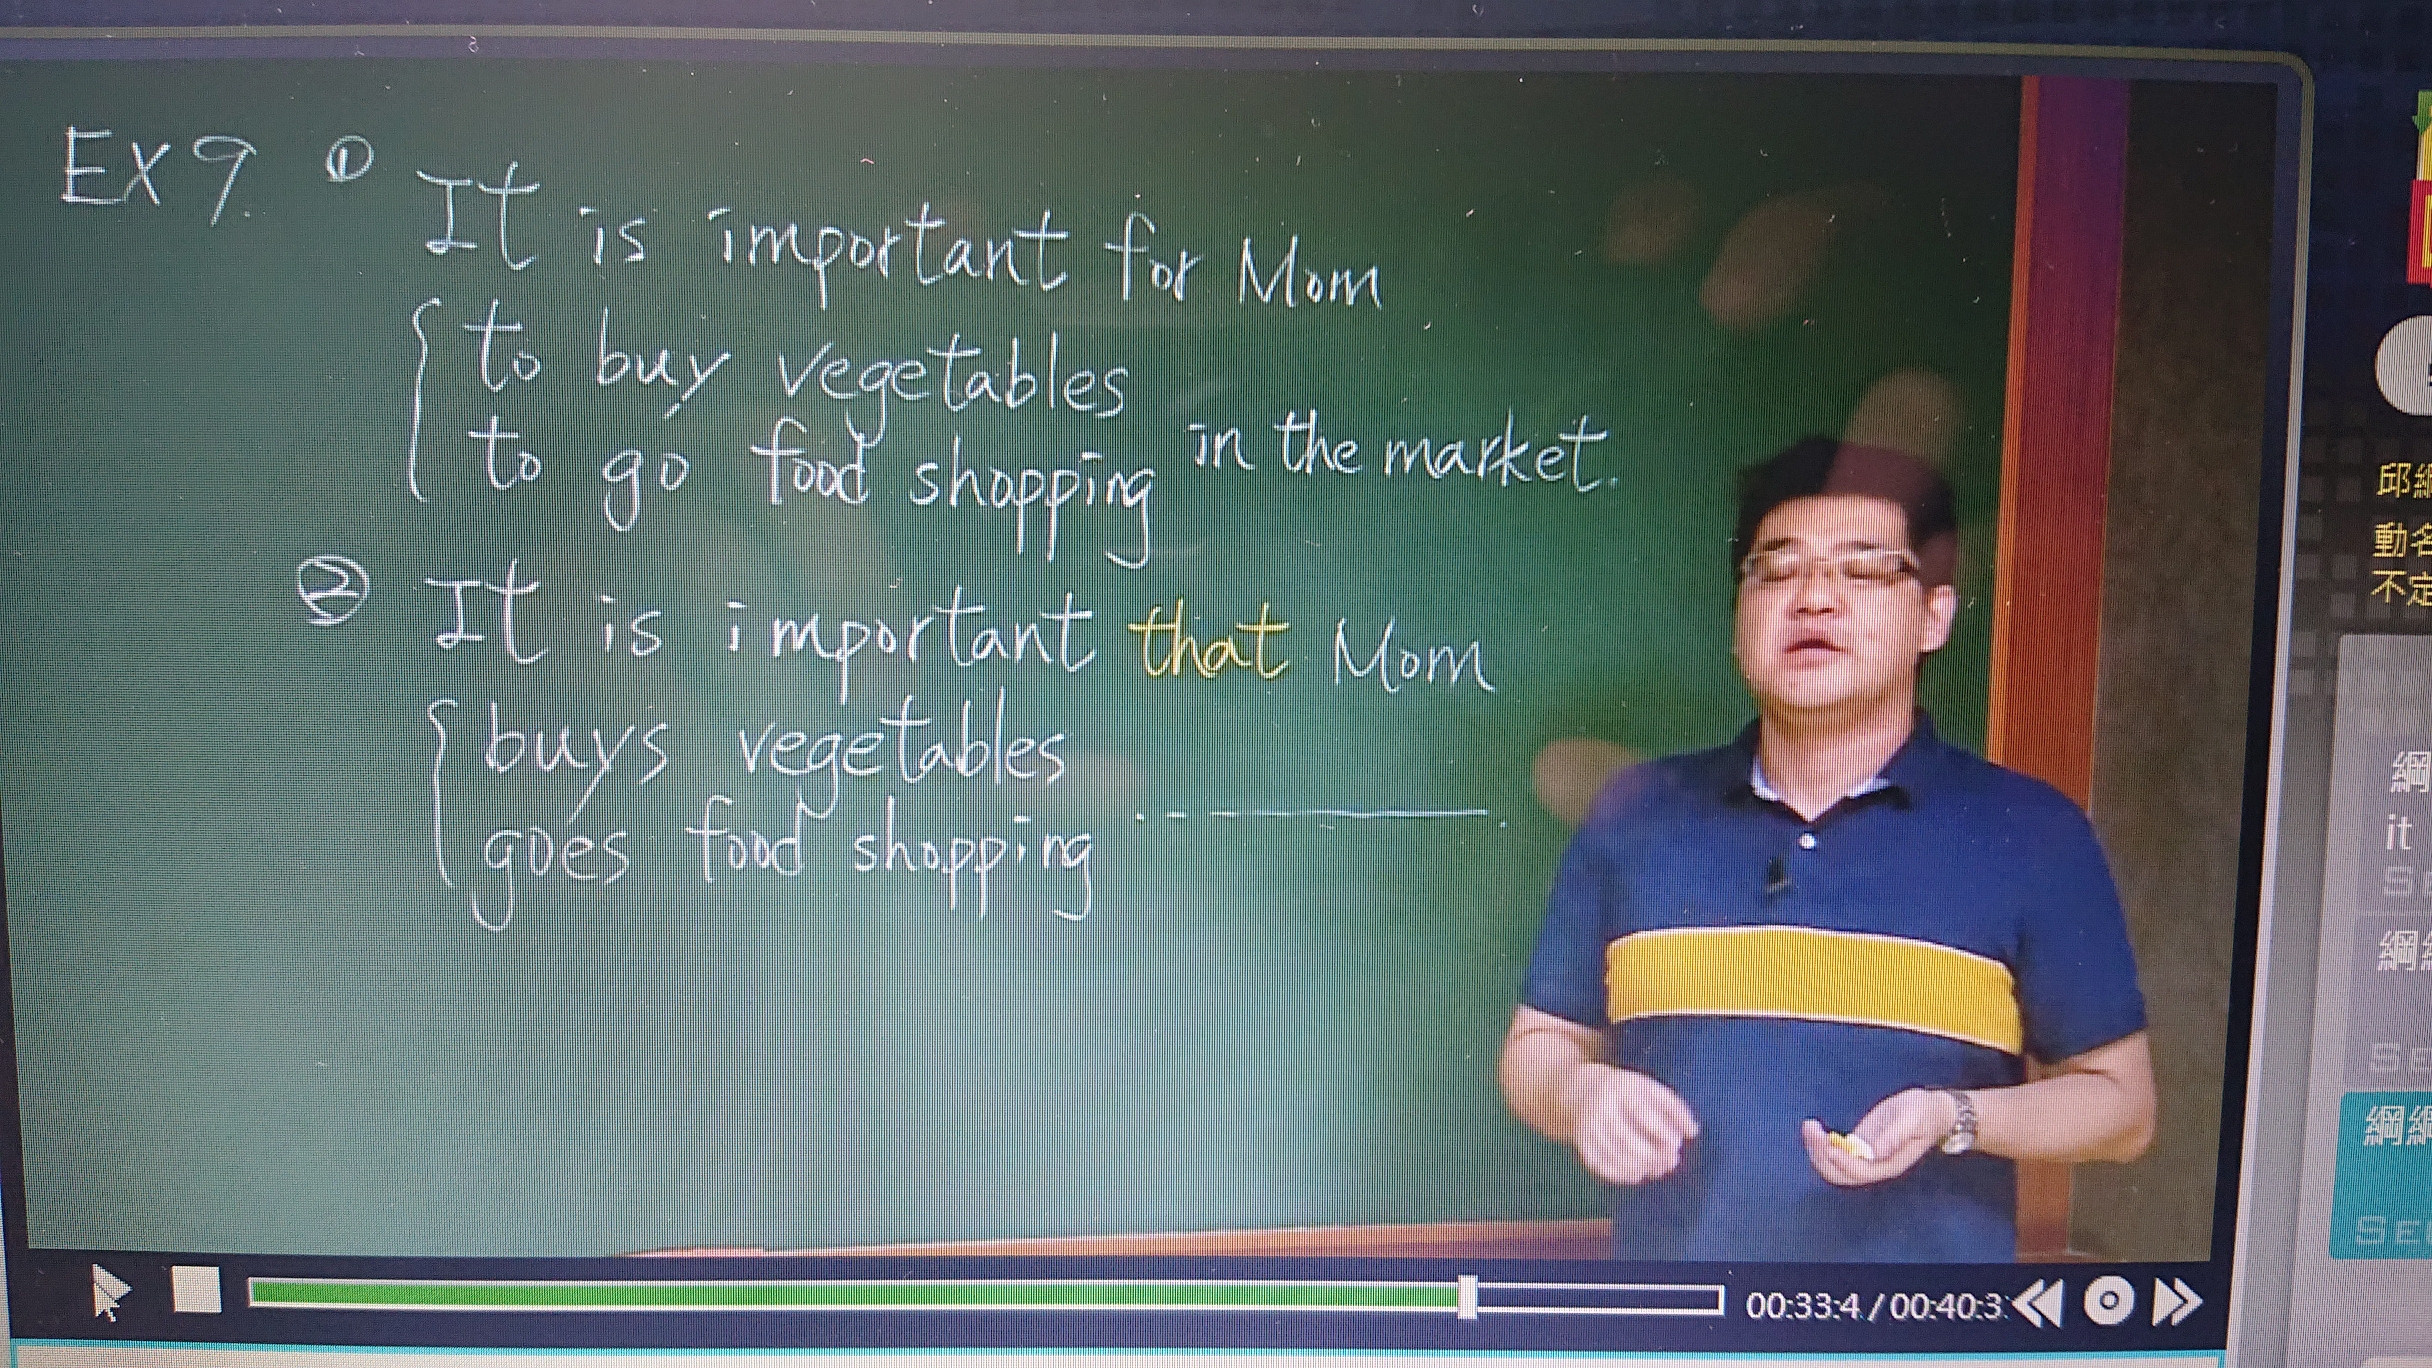 Ex 9. ① It is important for Mom
to buy vegetables
to go food shopping in the market.
② It is important that Mom
buys vegetables
goes food shopping
00:33:4 / 00:40:3
邱
動名
不定
網
it
網
網